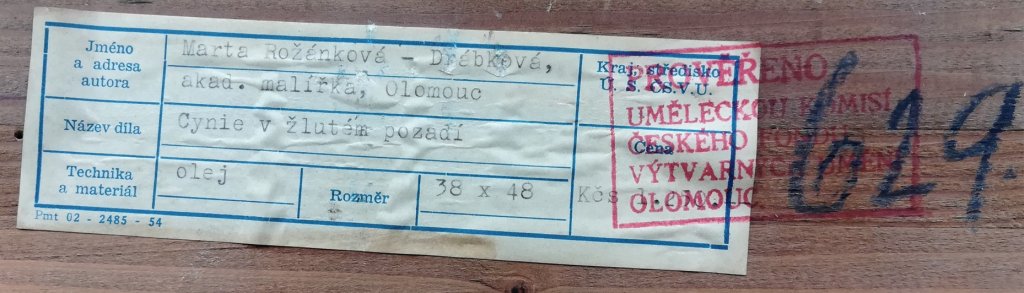 Jméno
a adresa
autora
Marta Rožánková - Drábková,
akad. malířka, Olomouc
Kraj. středisko
Ú. S. ČS.V.U.
Název díla
Cynie v žlutém pozadí
Cena
Technika
a materiál
olej
Rozměr
38 x 48
Kčs
Pmt 02 - 2485 - 54
PROVĚŘENO
UMĚLECKOU KOMISÍ
ČESKÉHO FONDU
VÝTVARNÝCH UMĚNÍ
OLOMOUC
629.